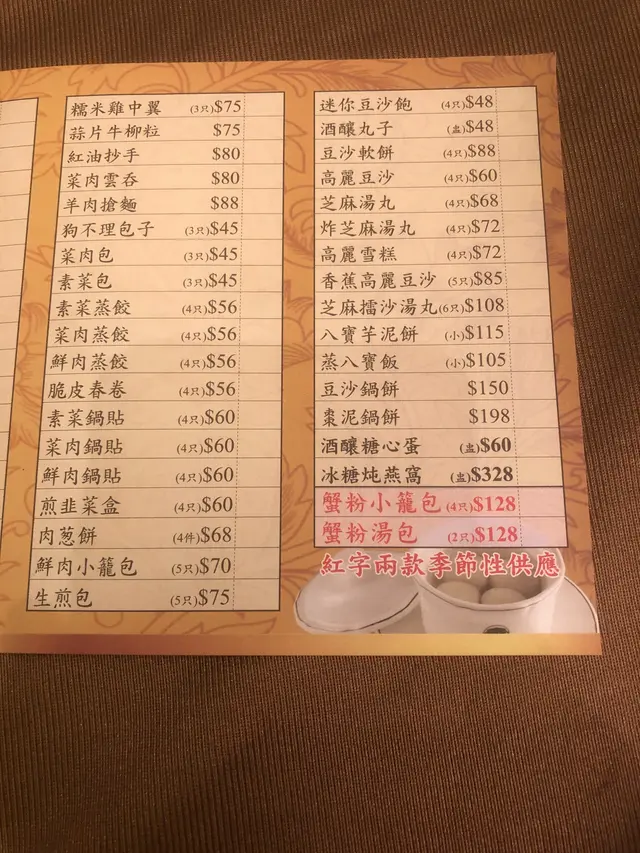 糯米雞中翼 (3只)$75
蒜片牛柳粒 $75
紅油抄手 $80
菜肉雲吞 $80
羊肉搶麵 $88
狗不理包子 (3只)$45
菜肉包 (3只)$45
素菜包 (3只)$45
素菜蒸餃 (4只)$56
菜肉蒸餃 (4只)$56
鮮肉蒸餃 (4只)$56
脆皮春卷 (4只)$56
素菜鍋貼 (4只)$60
菜肉鍋貼 (4只)$60
鮮肉鍋貼 (4只)$60
煎韭菜盒 (4只)$60
肉葱餅 (4件)$68
鮮肉小籠包 (5只)$70
生煎包 (5只)$75
迷你豆沙飽 (4只)$48
酒釀丸子 (盅)$48
豆沙軟餅 (4只)$88
高麗豆沙 (4只)$60
芝麻湯丸 (4只)$68
炸芝麻湯丸 (4只)$72
高麗雪糕 (4只)$72
香蕉高麗豆沙 (5只)$85
芝麻擂沙湯丸(6只)$108
八寶芋泥餅 (小)$115
蒸八寶飯 (小)$105
豆沙鍋餅 $150
棗泥鍋餅 $198
酒釀糖心蛋 (盅)$60
冰糖炖燕窩 (盅)$328
蟹粉小籠包 (4只)$128
蟹粉湯包 (2只)$128
紅字兩款季節性供應